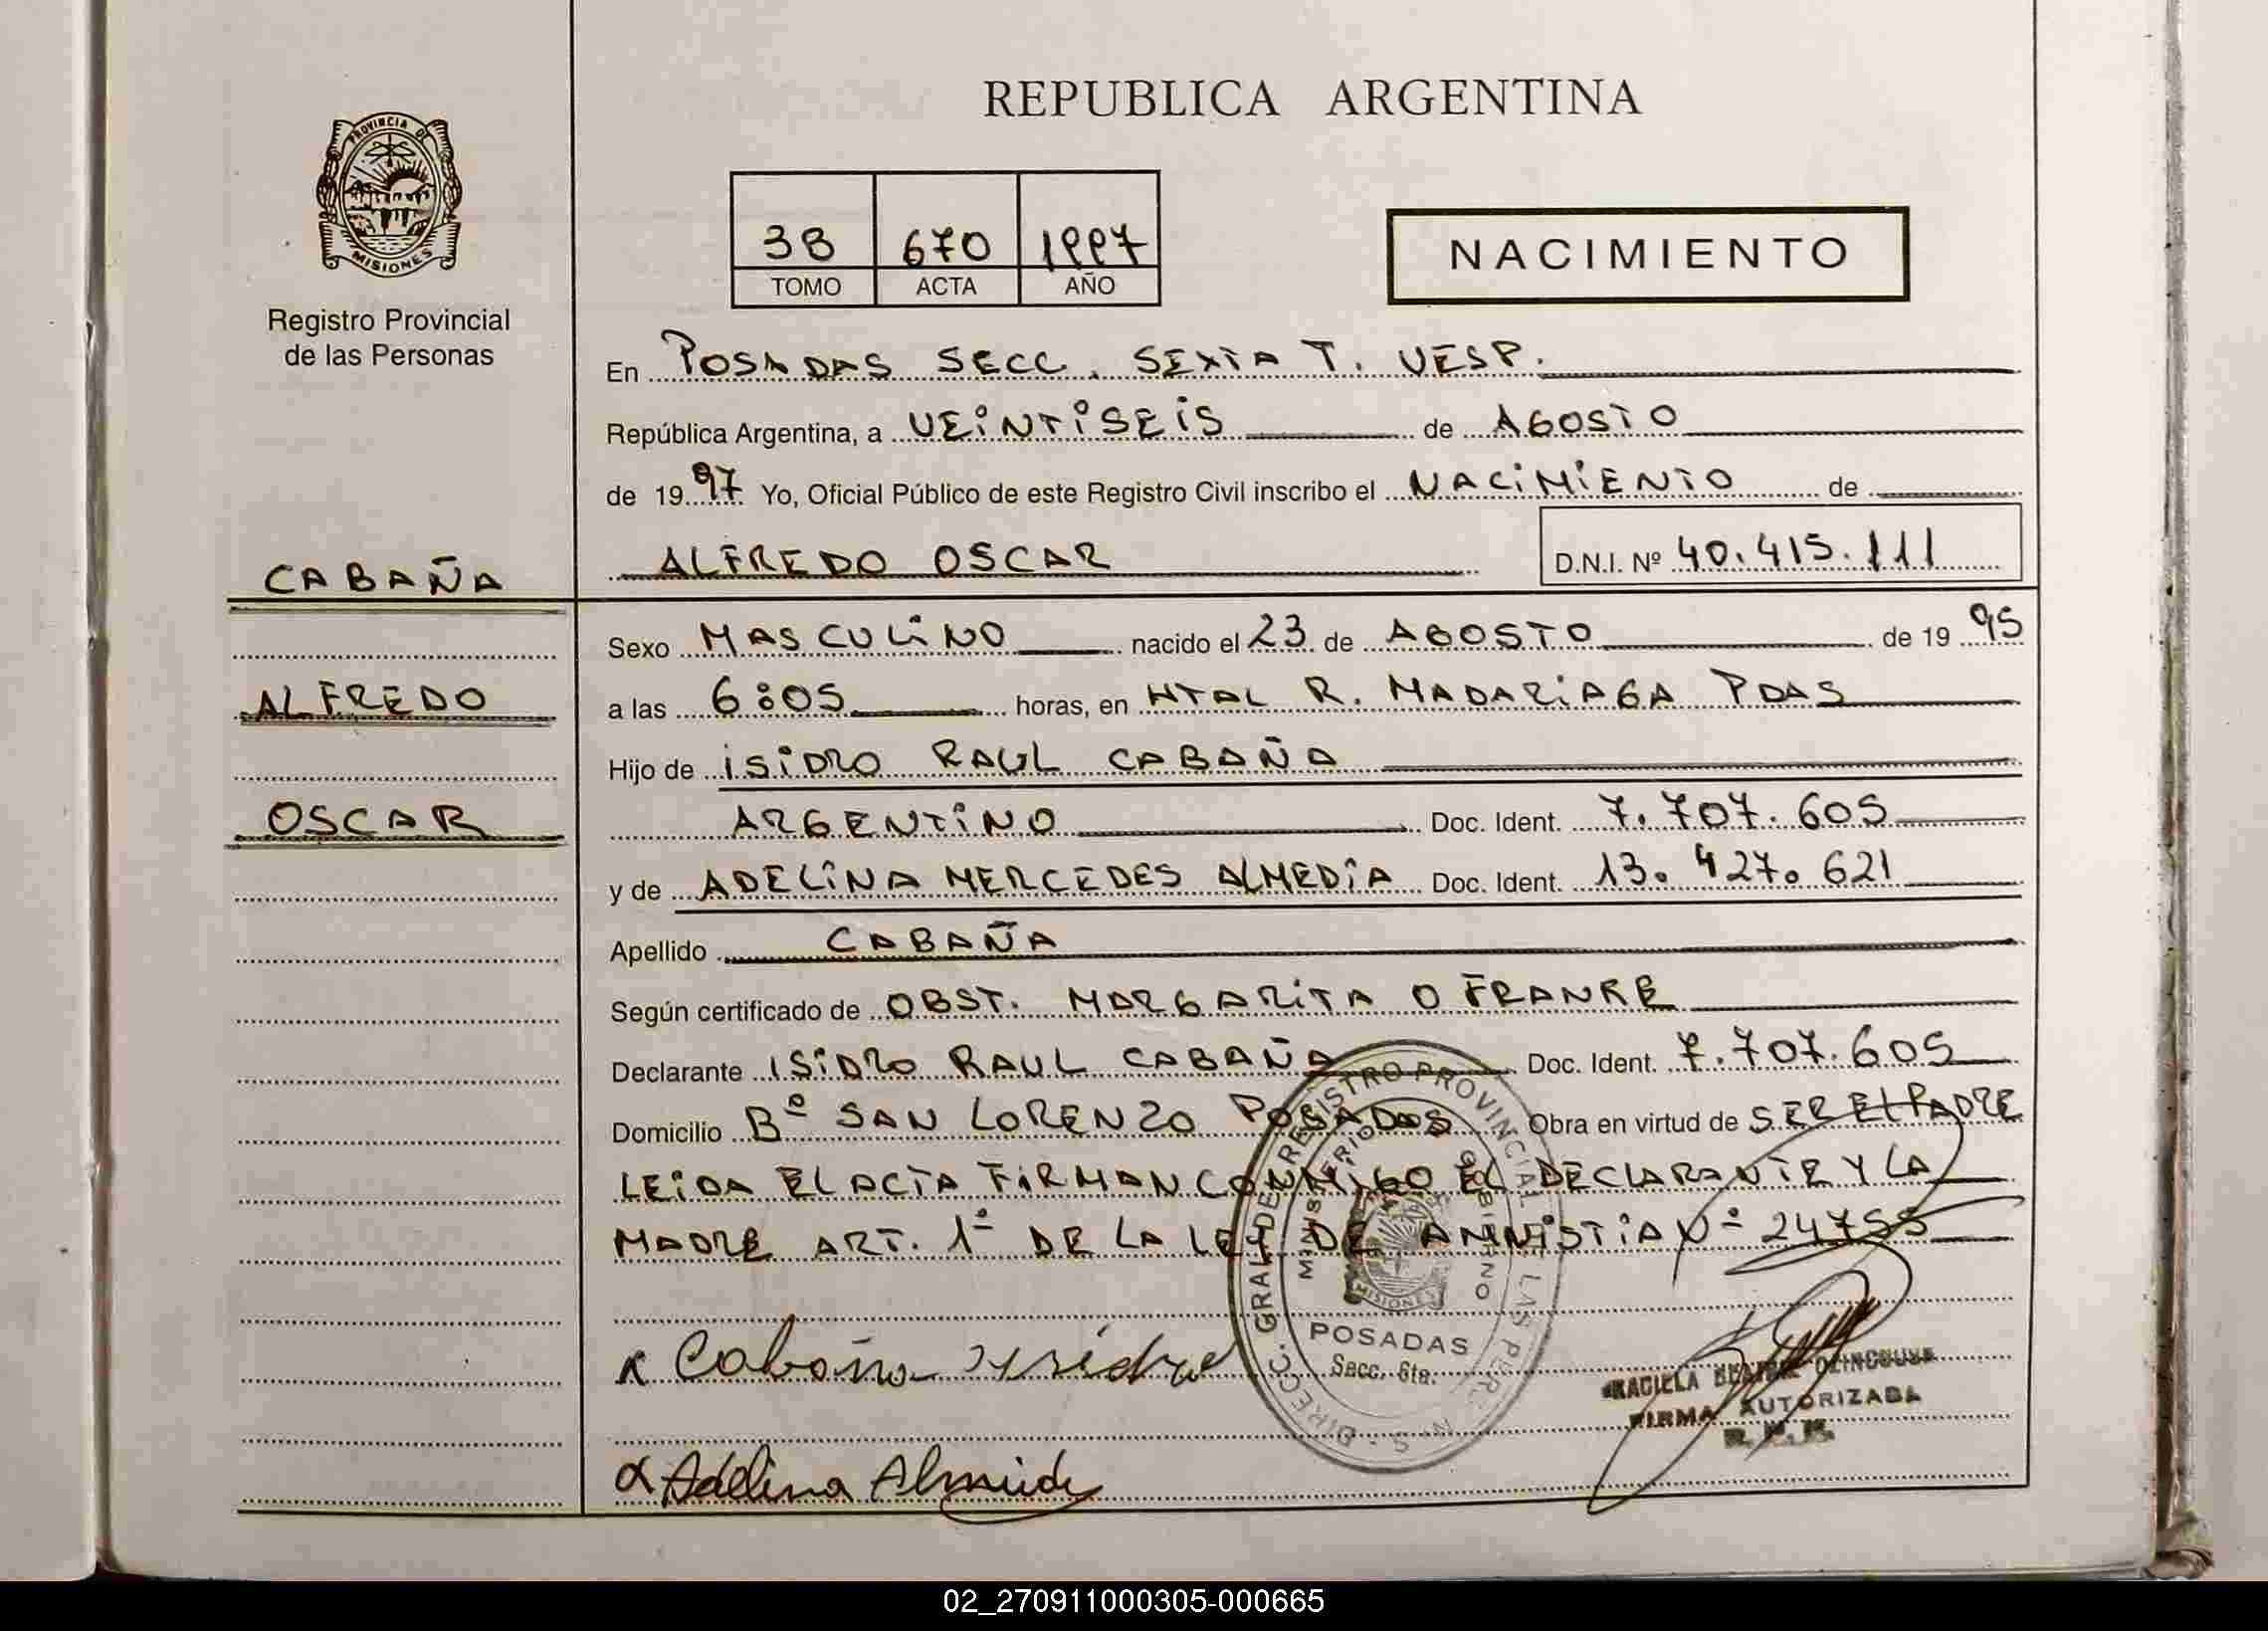 REPUBLICA ARGENTINA
PROVINCIA DE
MISIONES
Registro Provincial
de las Personas
3B 670 1997
TOMO ACTA AÑO
NACIMIENTO
En POSADAS SECC. SEXTA T. VESP.
República Argentina, a VEINTISEIS de AGOSTO
de 1997 Yo, Oficial Público de este Registro Civil inscribo el NACIMIENTO de
ALFREDO OSCAR D.N.I. Nº 40.415.111
CABAÑA
ALFREDO
OSCAR
Sexo MASCULINO nacido el 23 de AGOSTO de 1995
a las 6:05 horas, en HTAL R. MADARIAGA PDAS
Hijo de ISIDRO RAUL CABAÑA
ARGENTINO Doc. Ident. 7.707.605
y de ADELINA MERCEDES ALMEDIA Doc. Ident. 13.427.621
Apellido CABAÑA
Según certificado de OBST. MARGARITA O FRANKE
Declarante ISIDRO RAUL CABAÑA Doc. Ident. 7.707.605
Domicilio Bº SAN LORENZO POSADAS Obra en virtud de SER EL PADRE
LEIDA EL ACTA FIRMAN CONMIGO EL DECLARANTE Y LA
MADRE ART. 1º DE LA LEY DE AMNISTIA Nº 24755
DIRECC. GRAL DE REGISTRO PROVINCIAL LAS PERSONAS
MINISTERIO GOBIERNO
MISIONES
POSADAS
Secc. 6ta.
x Cabaña Isidro
FIRMA AUTORIZADA
R. P. P.
x Adelina Almeida
02_270911000305-000665